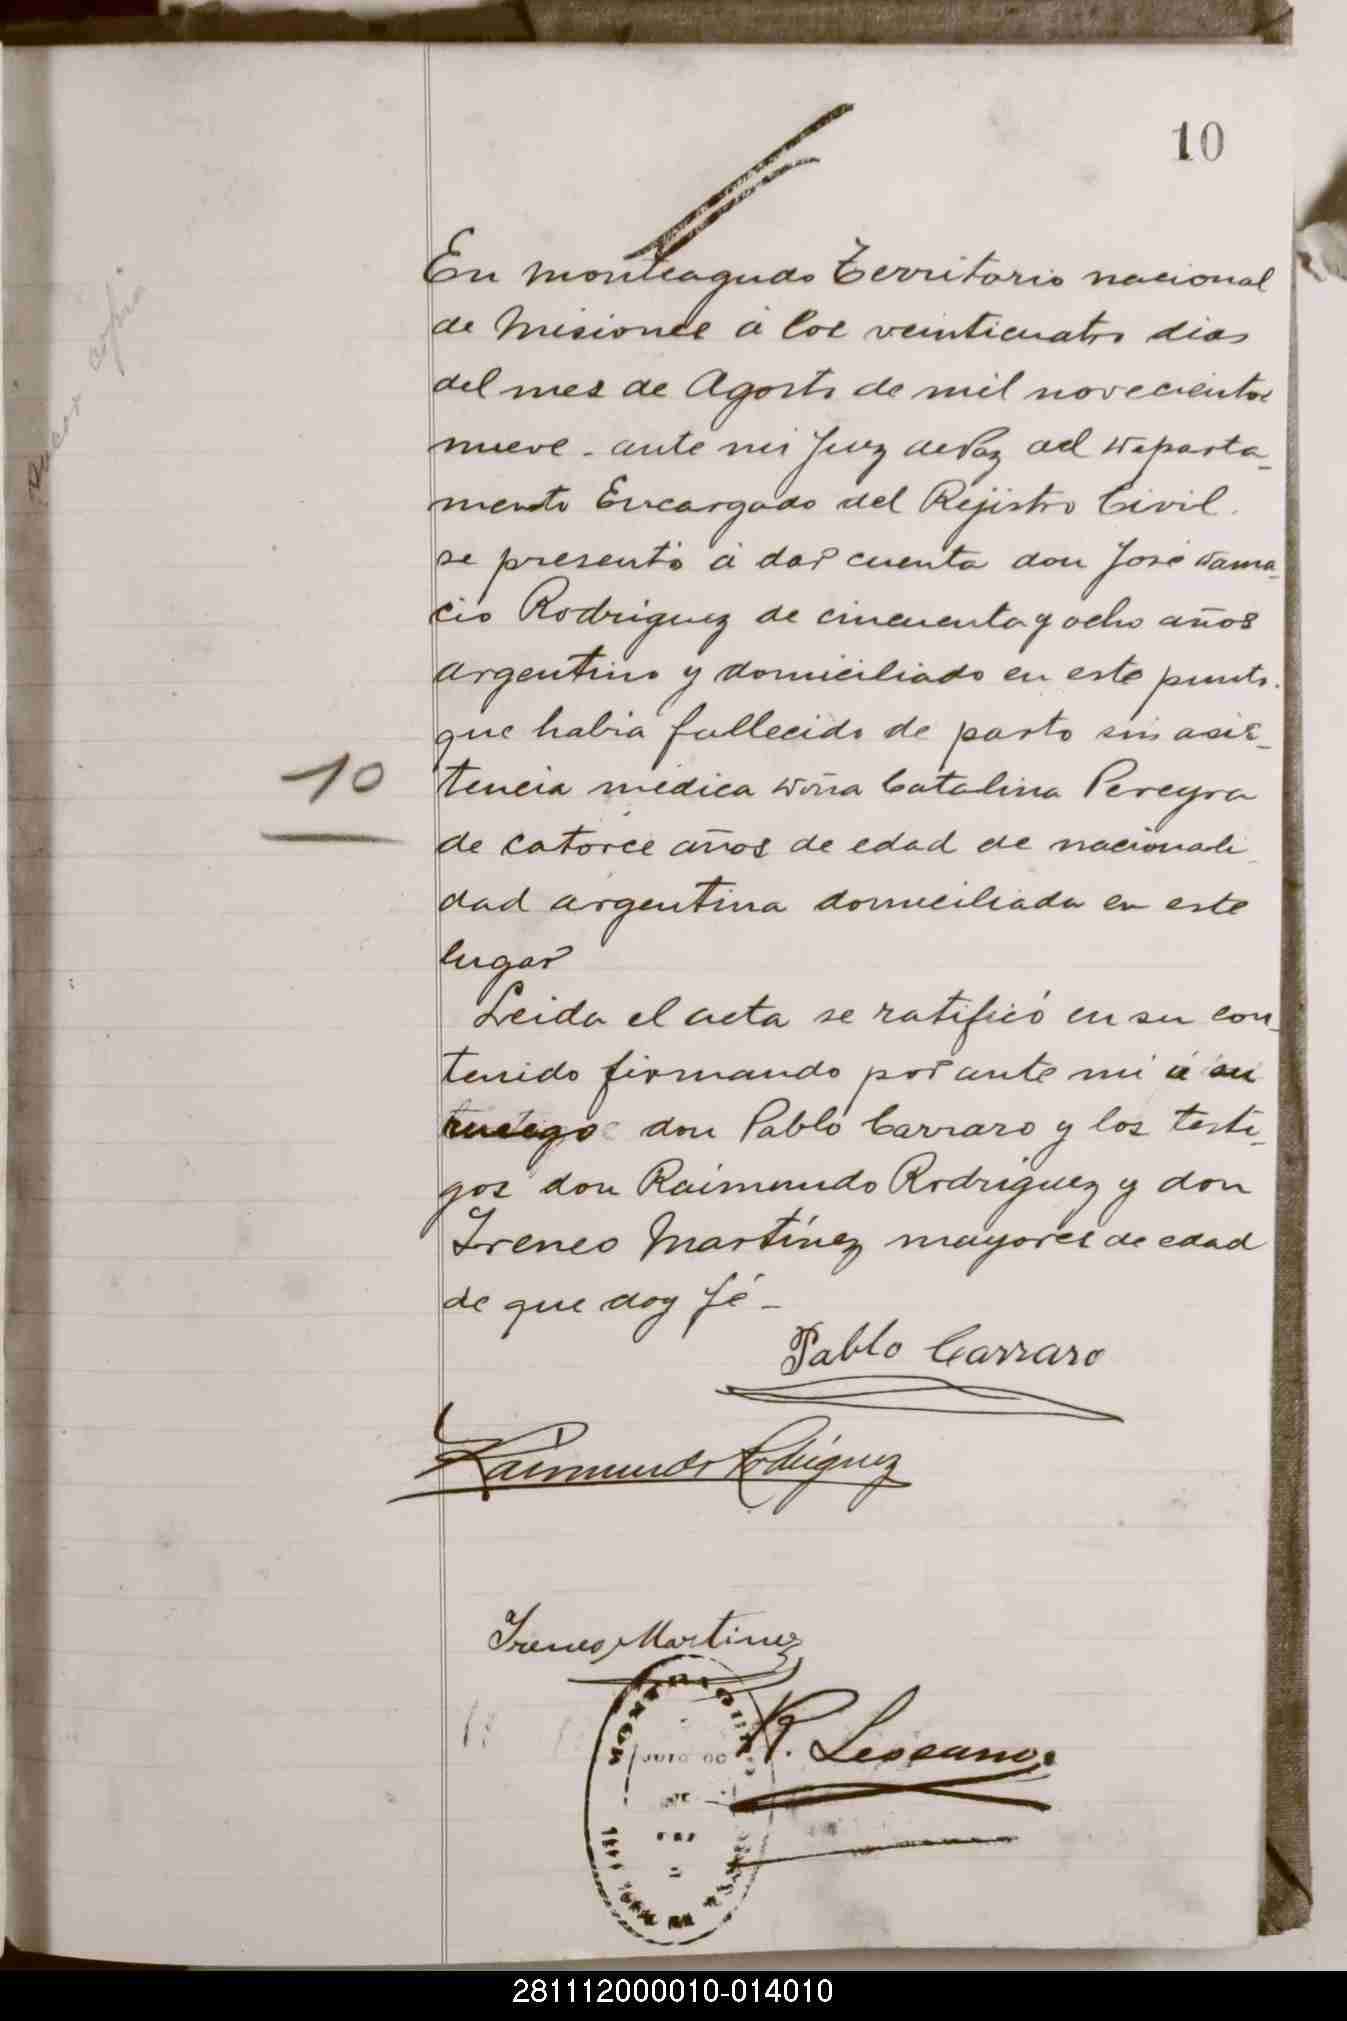 10
En Monteagudo Territorio nacional
de Misiones á los veinticuatro dias
del mes de Agosto de mil novecientos
nueve - ante mi Juez de Paz del Departa-
mento Encargado del Rejistro Civil.
se presentó á dar cuenta don José Dama-
cio Rodriguez de cincuenta y ocho años
argentino y domiciliado en este punto.
que habia fallecido de parto sin asis-
10
tencia médica Doña Catalina Pereyra
de catorce años de edad de nacionali-
dad argentina domiciliada en este
lugar
Leida el acta se ratificó en su con-
tenido firmando por ante mi á su
ruego don Pablo Carraro y los testi-
gos don Raimundo Rodriguez y don
Ireneo Martínez mayores de edad
de que doy fé -
Pablo Carraro
Raimundo Rodriguez
Ireneo Martinez
R. Lescano
281112000010-014010